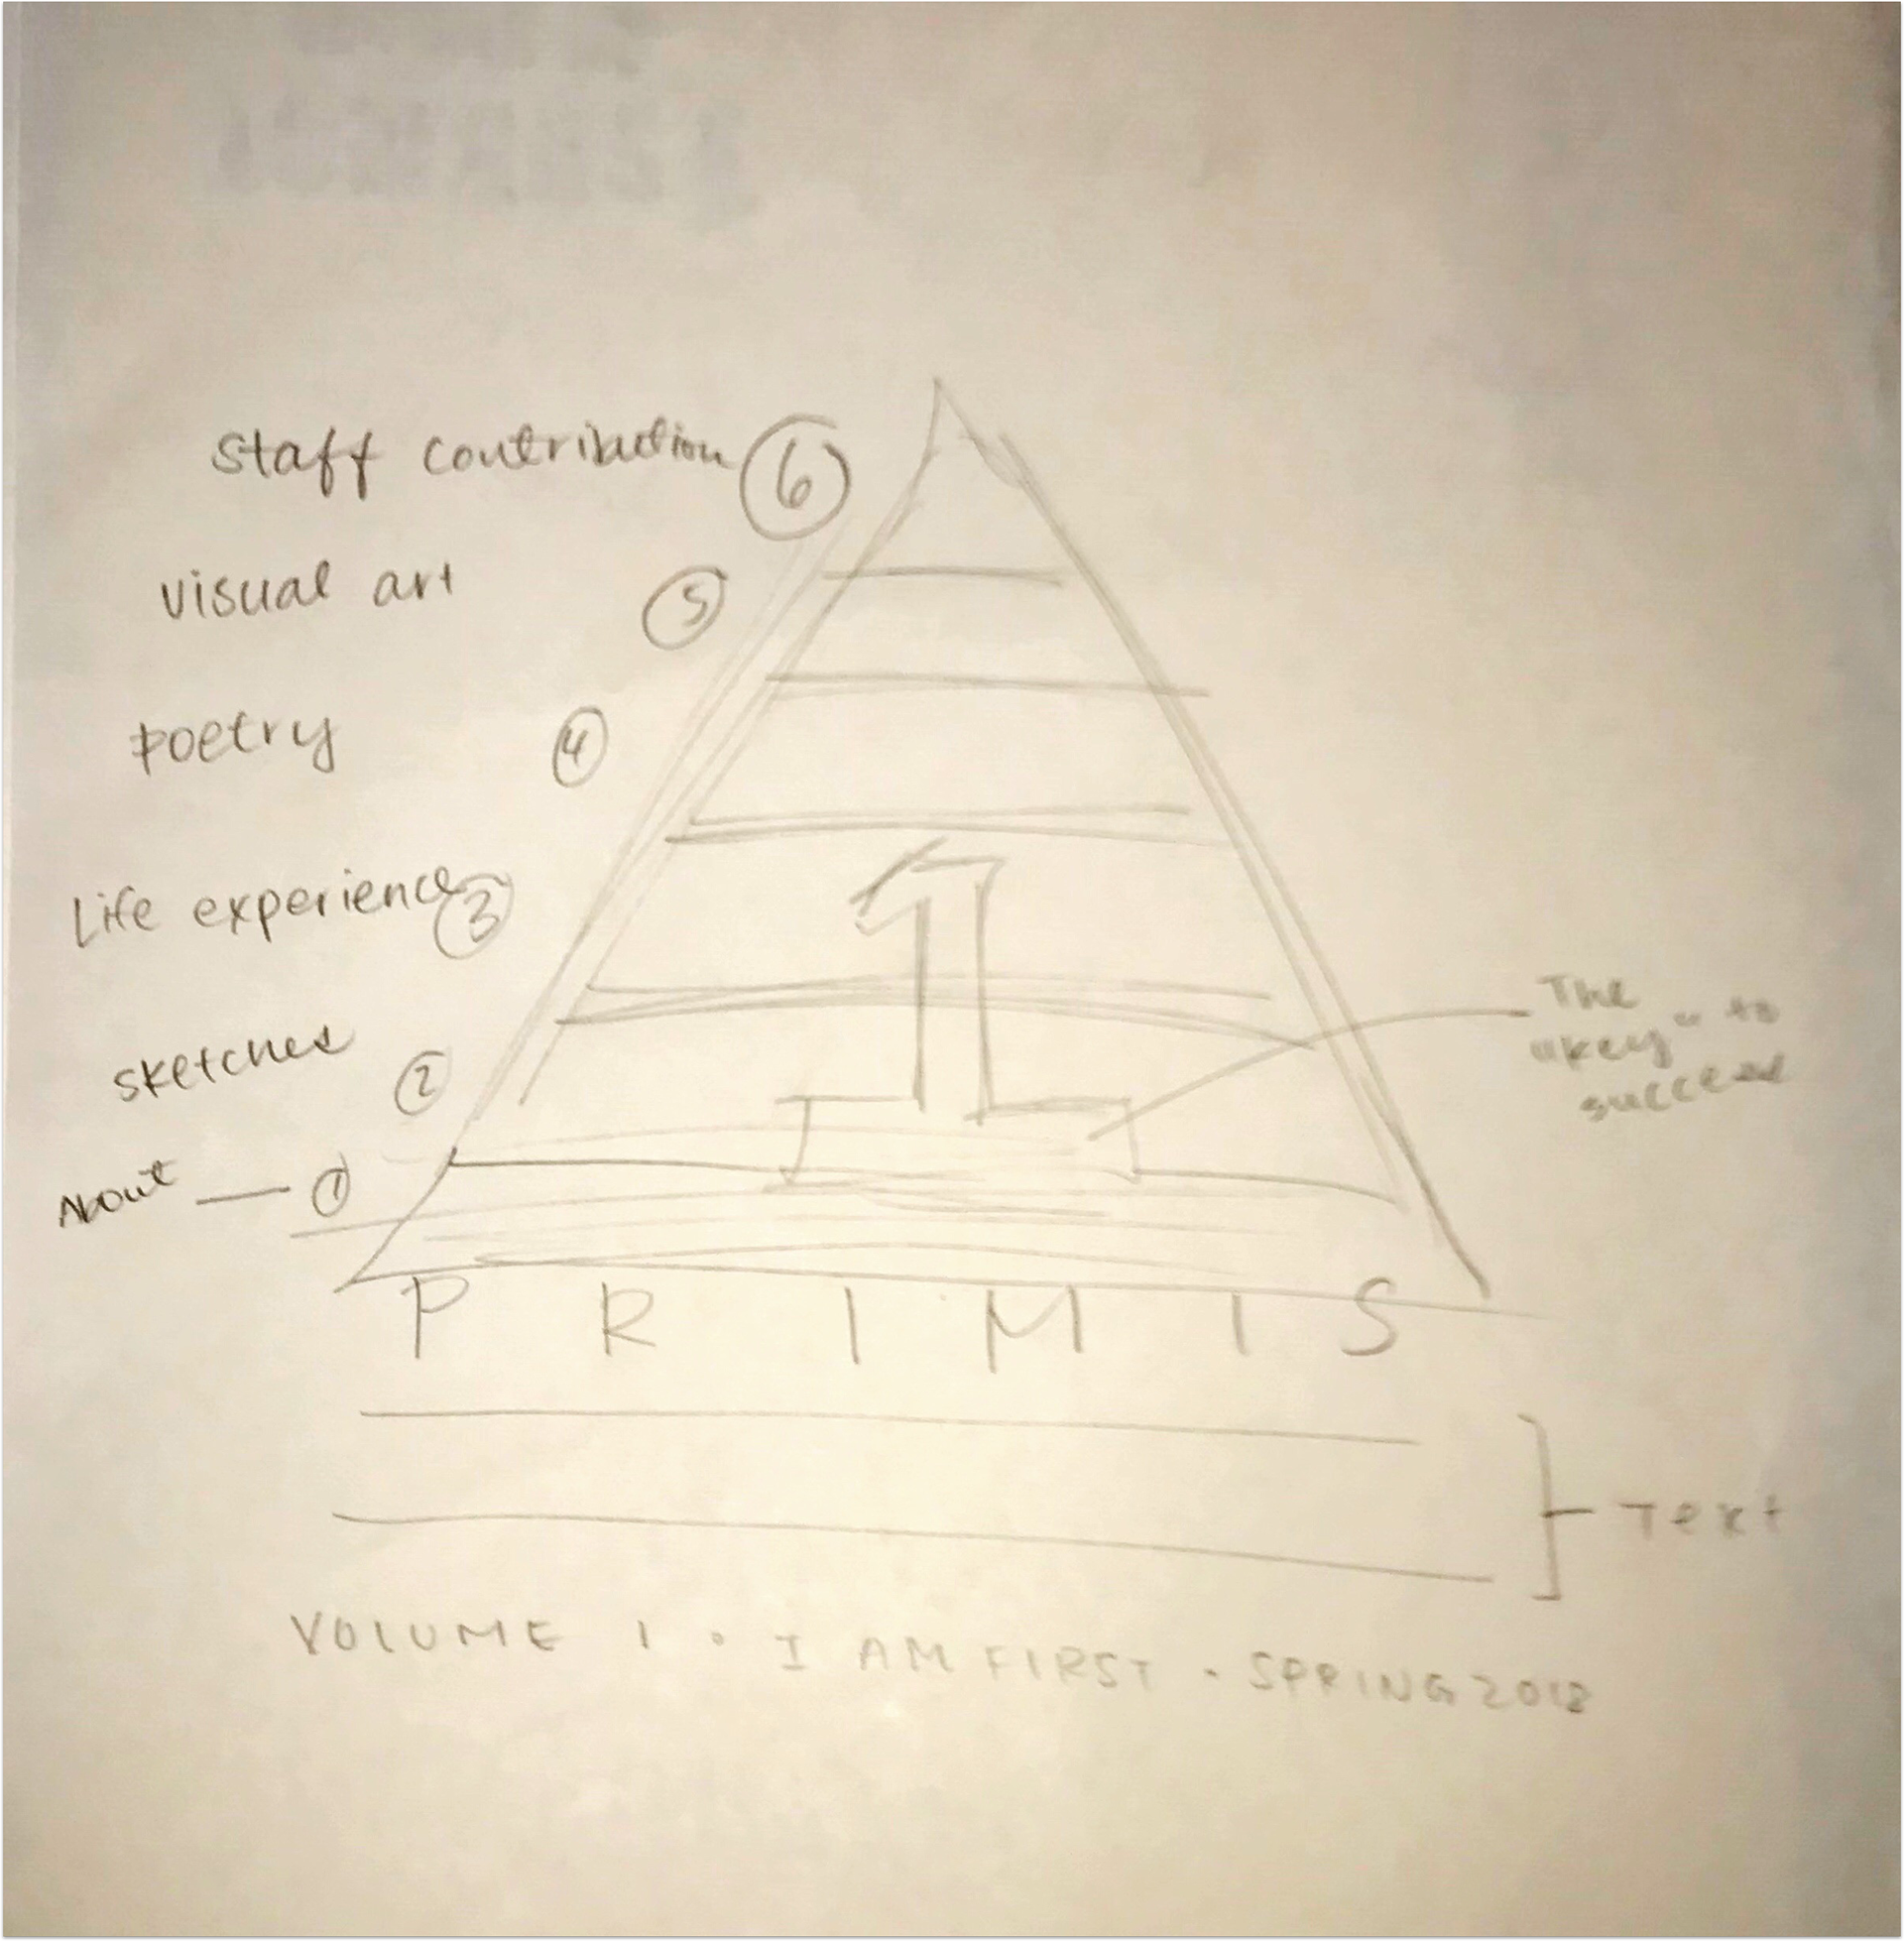 Staff contribution 6
visual art 5
poetry 4
Life experience 3
1
The
"key" to
success
sketches 2
About — 1
P R I M I S
Text
VOLUME 1 • I AM FIRST • SPRING 2018